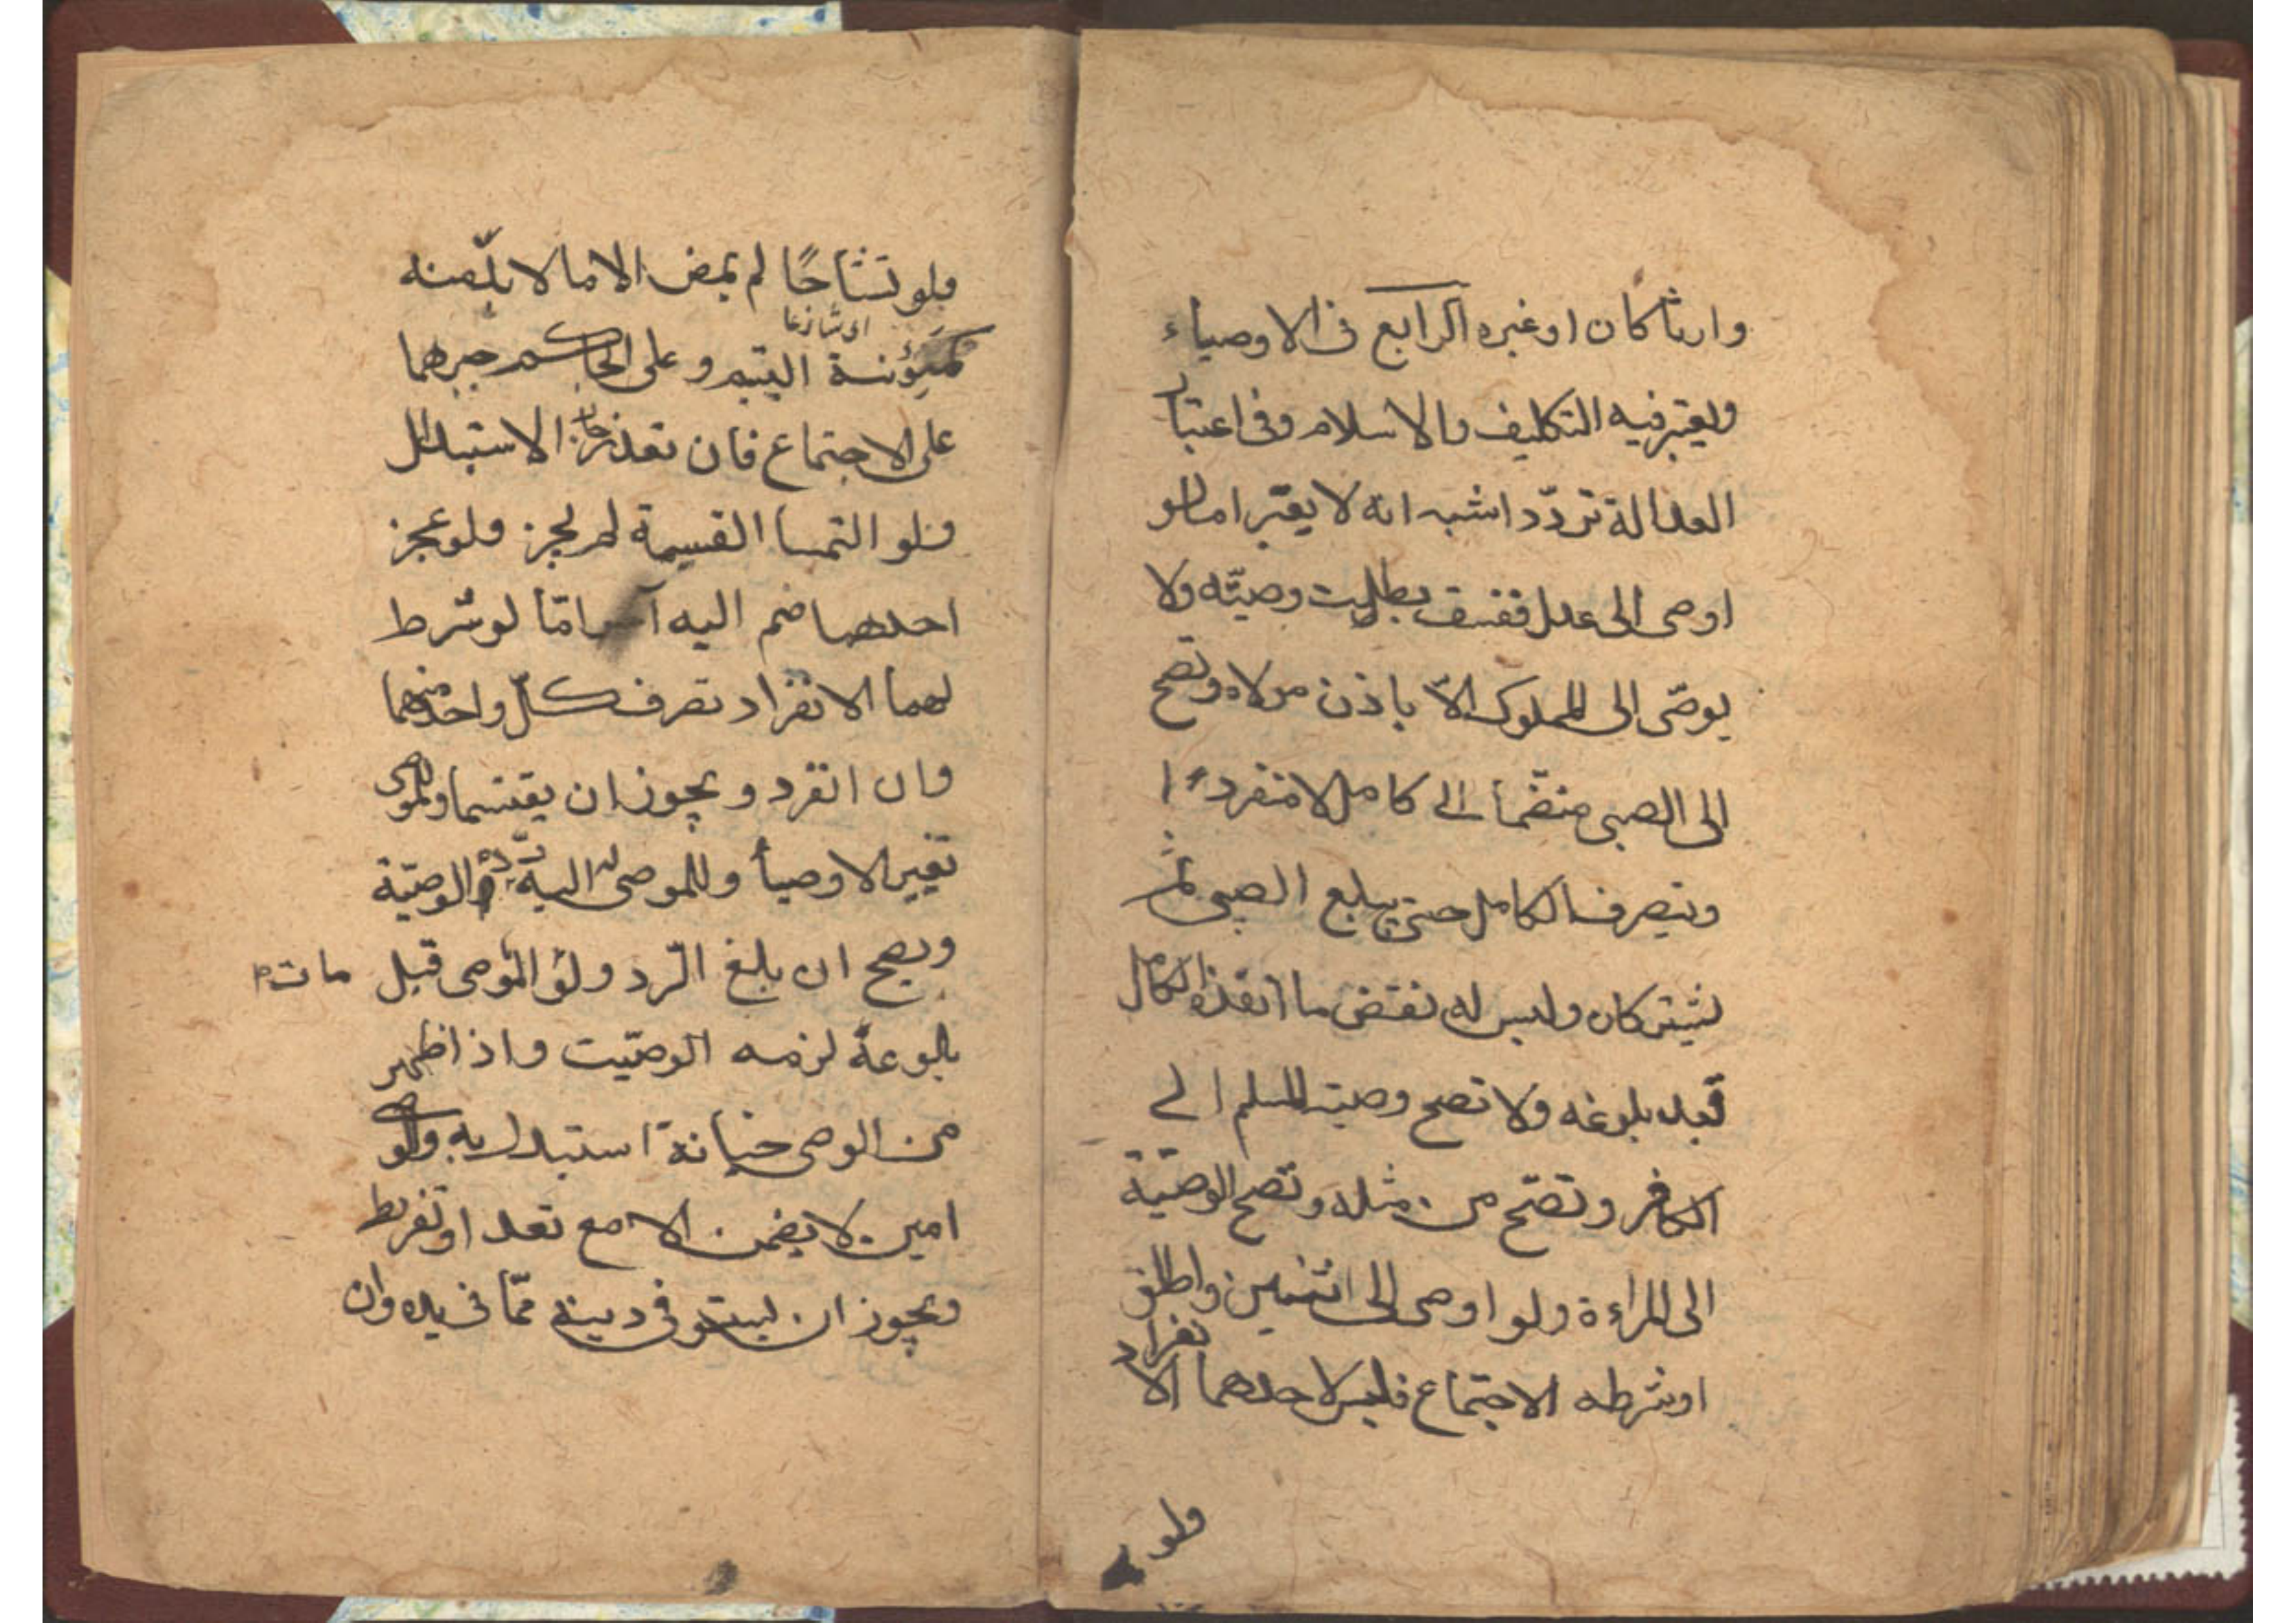 وارثا كان او غيره الرابع فى الاوصياء
ويعتبر فيه التكليف والاسلام وفى اعتبار
العدالة تردّد اشبه انه لا يعتبر اما لو
اوصى الى عدل ففسق بطلت وصيّته ولا
يوصّى الى المملوك الاّ باذن مولاه وتصح
الى الصبى منضمّا الى كامل لا منفردا
ويتصرف الكامل حتى يبلع الصبى ثمّ
يشتركان وليس له نقض ما انفذه الكامل
قبل بلوغه ولا تصح وصية المسلم الى
الكافر وتصّح من مثله وتصّح الوصيّة
الى المراءة ولو اوصى الى اثنين واطلق
او شرطه الاجتماع فليس لاحدهما الانفراد
ولو
ولو تشاحّا لم يمض الا ما لا بدّ منه
اى تنازعا
كمؤنة اليتيم وعلى الحاكم جبرهما
على الاجتماع فان تعذر جاز الاستبدال
ولو التمسا القسمة لم يجز ولو عجز
احدهما ضم اليه امّا لو شرط
لهما الانفراد تصرف كلّ واحد منهما
وان انفرد ويجوز ان يقتسما وللموصى
تغيير الاوصيا وللموصى اليه ردّ الوصيّة
ويصح ان بلغ الرّد ولو الموصى قبل مات
بلوغه لزمه الوصيّت واذا ظهر
من الوصى خيانة استبدل به والوصى
امين لا يضمن الا مع تعد او تفريط
ويجوز ان يستوفى دينه ممّا فى يده وان